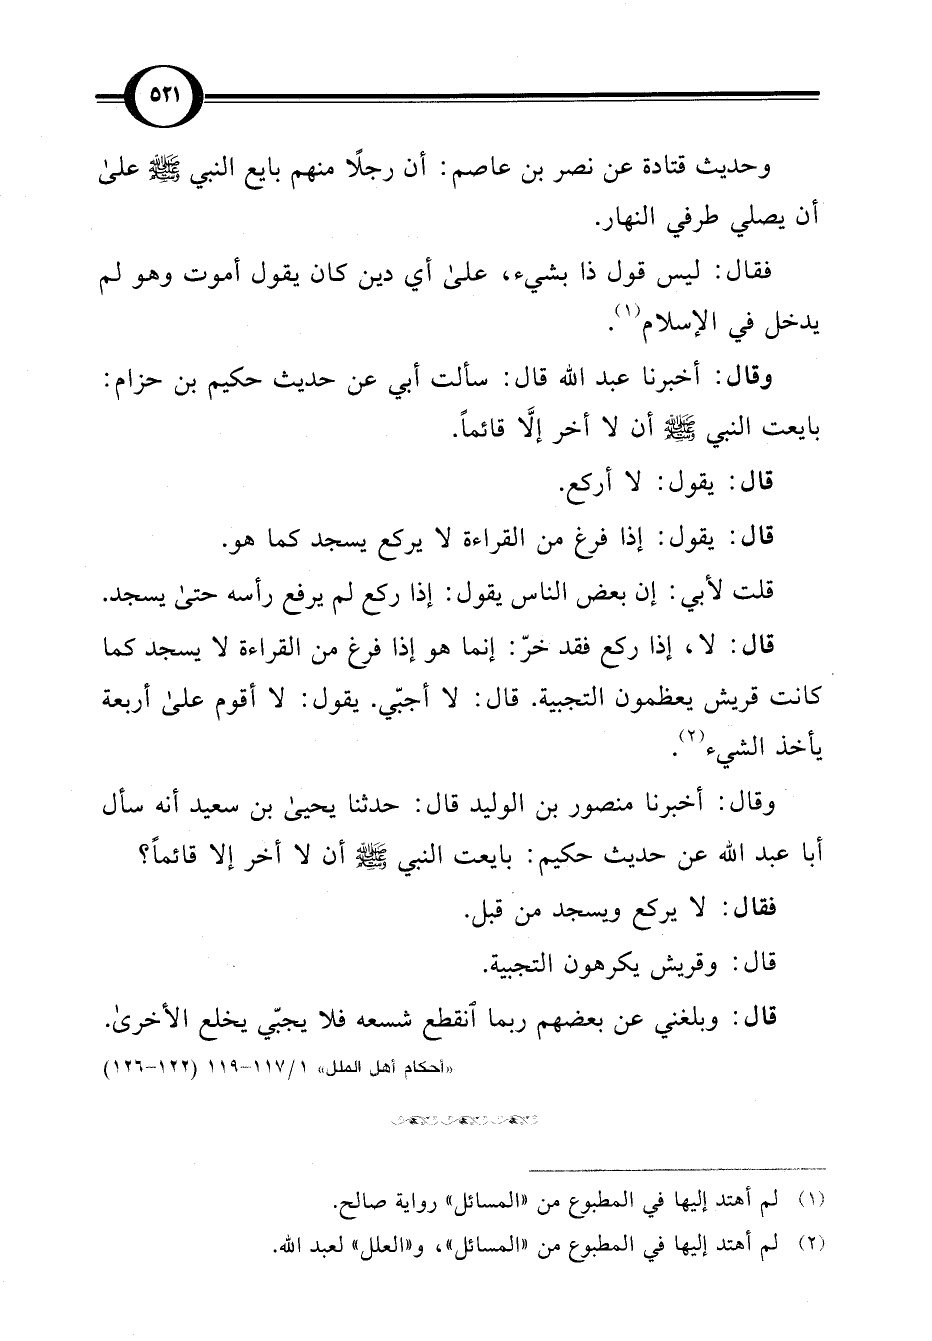 ٥٢١
وحديث قتادة عن نصر بن عاصم: أن رجلًا منهم بايع النبي ﷺ علىٰ
أن يصلي طرفي النهار.
فقال: ليس قول ذا بشيء، علىٰ أي دين كان يقول أموت وهو لم
يدخل في الإسلام(١).
وقال: أخبرنا عبد الله قال: سألت أبي عن حديث حكيم بن حزام:
بايعت النبي ﷺ أن لا أخر إلَّا قائماً.
قال: يقول: لا أركع.
قال: يقول: إذا فرغ من القراءة لا يركع يسجد كما هو.
قلت لأبي: إن بعض الناس يقول: إذا ركع لم يرفع رأسه حتىٰ يسجد.
قال: لا، إذا ركع فقد خرّ: إنما هو إذا فرغ من القراءة لا يسجد كما
كانت قريش يعظمون التجبية. قال: لا أجبّي. يقول: لا أقوم علىٰ أربعة
يأخذ الشيء(٢).
وقال: أخبرنا منصور بن الوليد قال: حدثنا يحيىٰ بن سعيد أنه سأل
أبا عبد الله عن حديث حكيم: بايعت النبي ﷺ أن لا أخر إلا قائماً؟
فقال: لا يركع ويسجد من قبل.
قال: وقريش يكرهون التجبية.
قال: وبلغني عن بعضهم ربما ٱنقطع شسعه فلا يجبّي يخلع الأخرىٰ.
«أحكام أهل الملل» ١/ ١١٧-١١٩ (١٢٢-١٢٦)
(١) لم أهتد إليها في المطبوع من «المسائل» رواية صالح.
(٢) لم أهتد إليها في المطبوع من «المسائل»، و«العلل» لعبد الله.